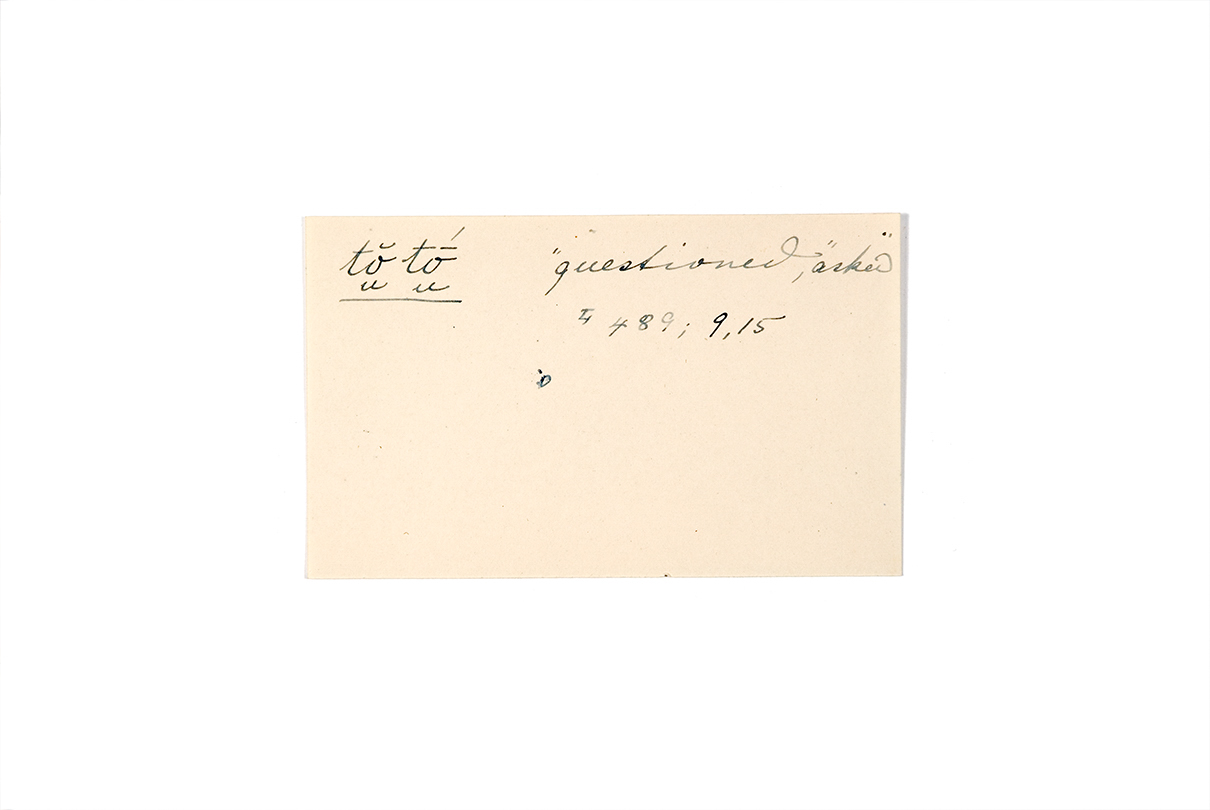 tŏ̤ tṓ̤ "questioned," "asked"
I 489; 9, 15